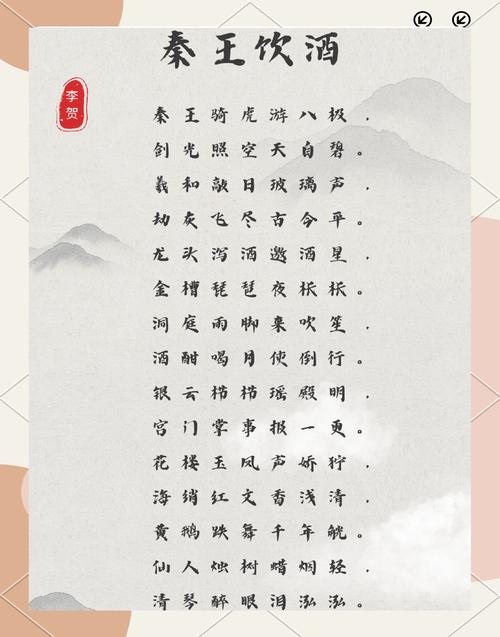 秦王饮酒
李贺
秦王骑虎游八极，
剑光照空天自碧。
羲和敲日玻璃声，
劫灰飞尽古今平。
龙头泻酒邀酒星，
金槽琵琶夜枨枨。
洞庭雨脚来吹笙，
酒酣喝月使倒行。
银云栉栉瑶殿明，
宫门掌事报一更。
花楼玉凤声娇狞，
海绡红文香浅清，
黄鹅跌舞千年觥。
仙人烛树蜡烟轻，
清琴醉眼泪泓泓。